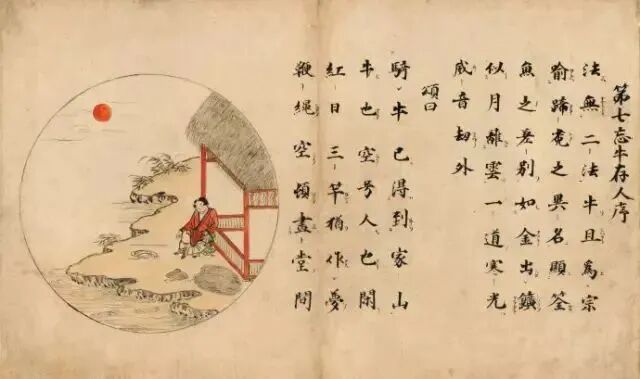 第七忘牛存人序
法無二法牛且為宗
喻蹄菟之異名顯筌
魚之差別如金出鑛
似月離雲一道寒光
威音劫外
頌曰
騎牛已得到家山
牛也空兮人也閑
紅日三竿猶作夢
鞭繩空頓草堂間